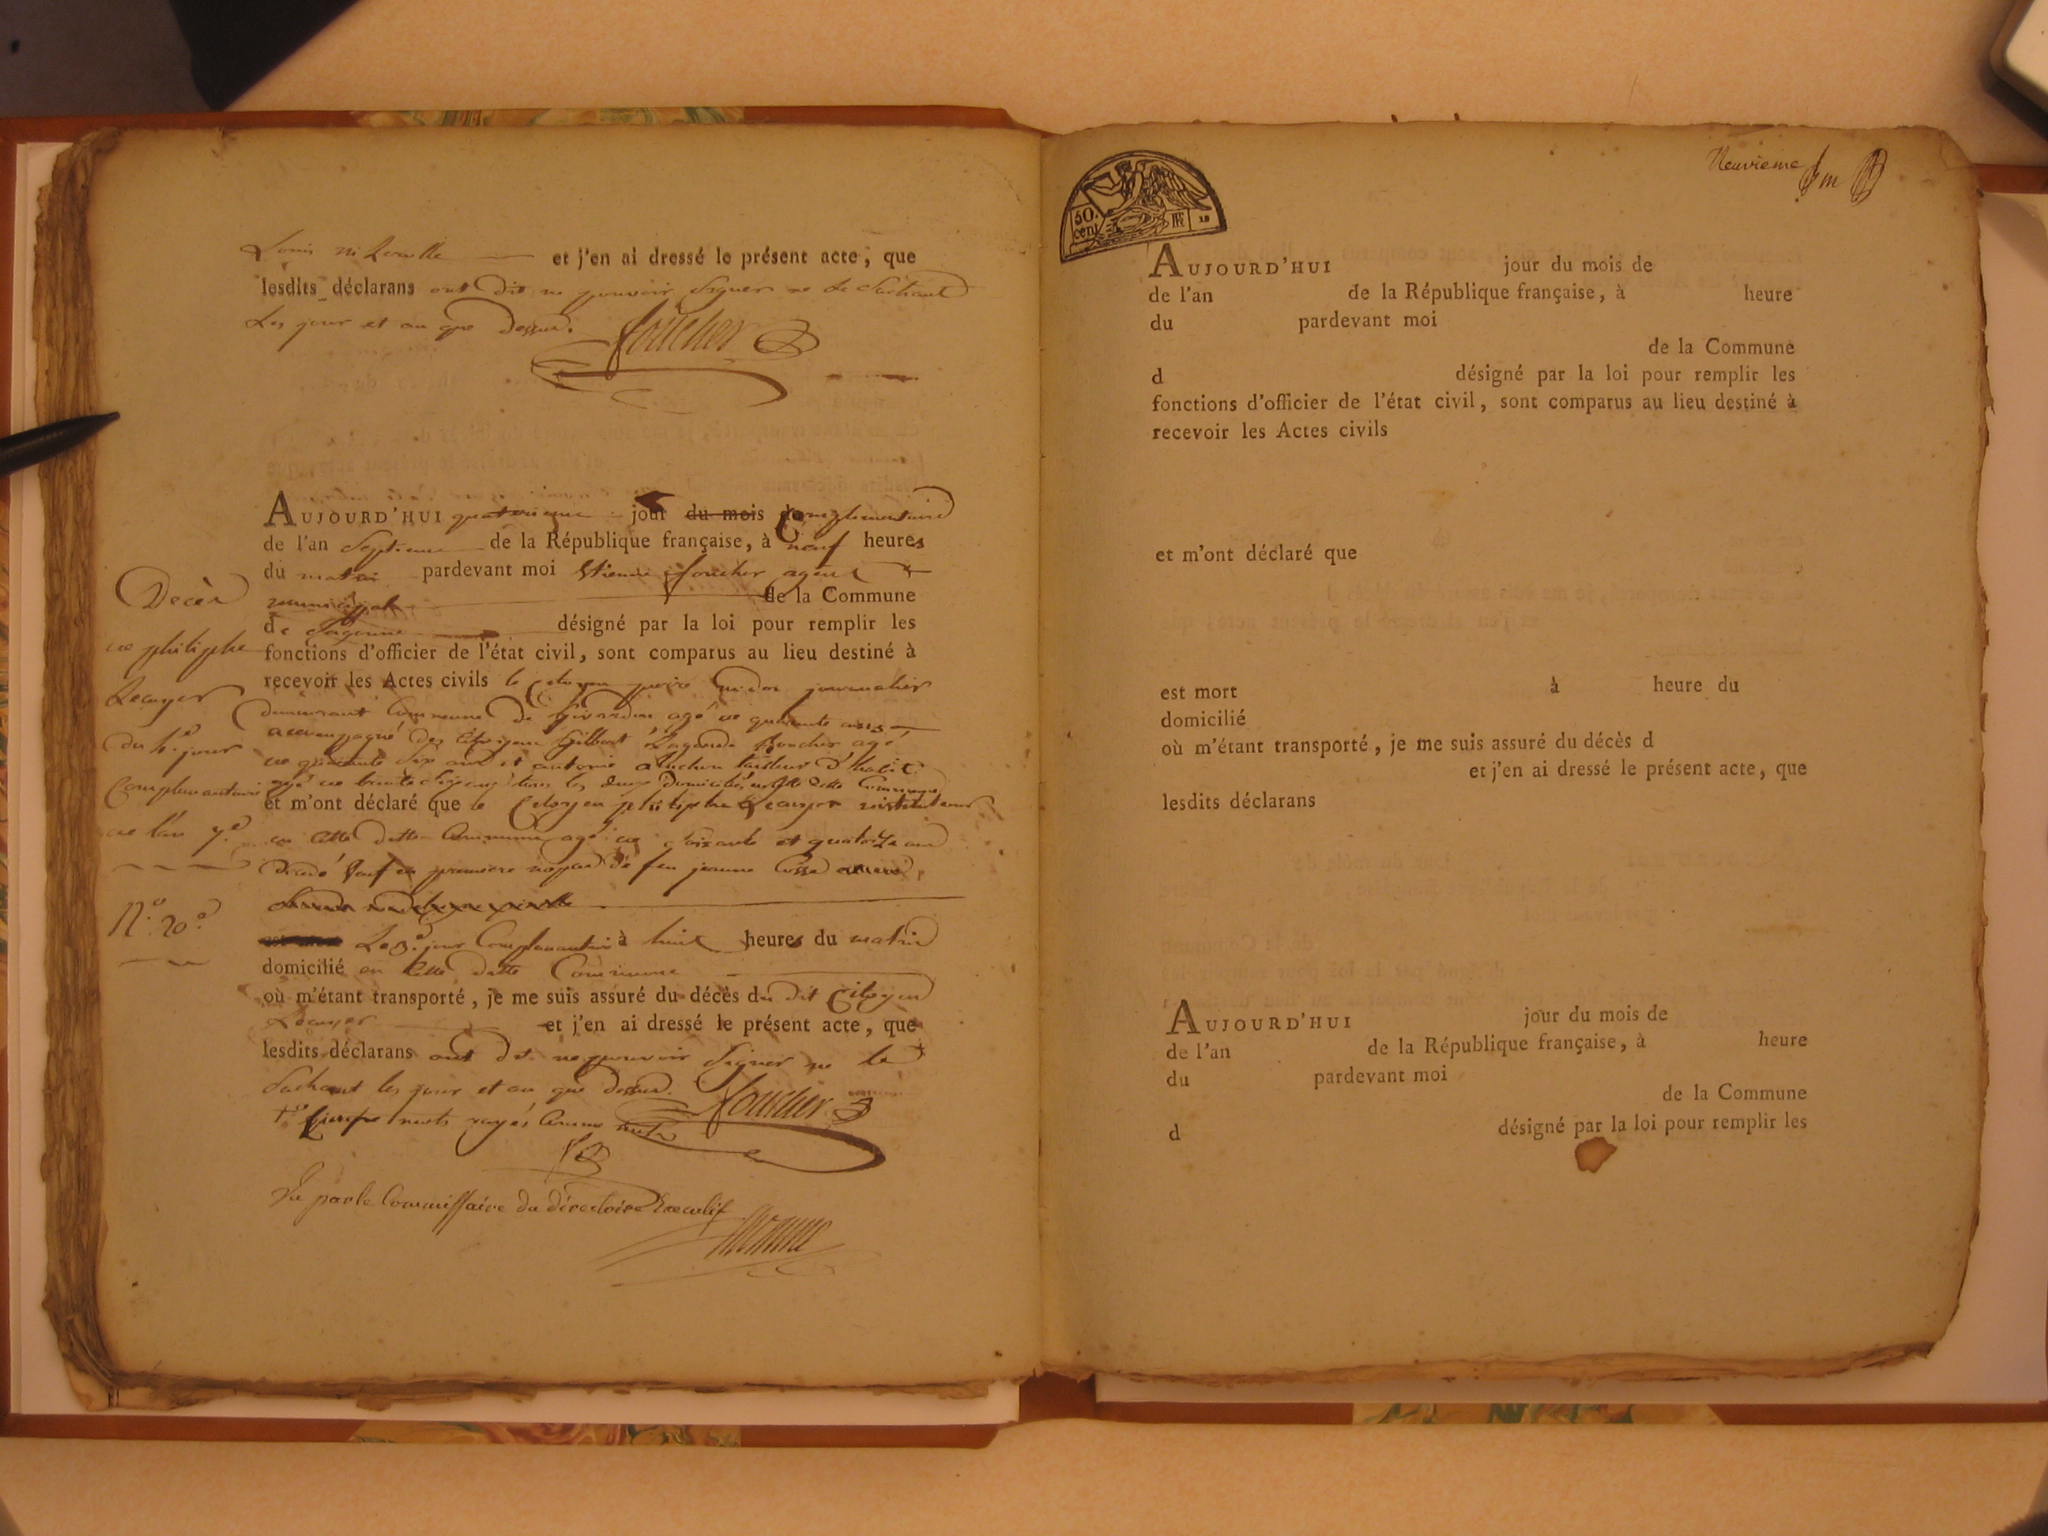 Louis et j'en ai dressé le présent acte, que
lesdits déclarans ont dit ne pouvoir signer ne le sachant
Les jour et an que dessus. foucher
AUJOURD'HUI quatrieme jour du mois de Complementaire
de l'an Septieme de la République française, à neuf heures
du matin pardevant moi Etienne foucher agent
municipal de la Commune
de Sagonne désigné par la loi pour remplir les
fonctions d'officier de l'état civil, sont comparus au lieu destiné à
recevoir les Actes civils le Citoyen journalier
demeurant Commune de Givardon agé de quarante ans
accompagné des Citoyens Gilbert Lagarde agé
de quarante six ans et antoine tailleur d'habit
agé de trente tous les deux Domiciliés en Cette ditte Commune
et m'ont déclaré que le Citoyen philiphe Lecuyer instituteur
en Cette ditte Commune agé de soixante et quatorze ans
veuf en premiere de feu jeanne
Le 3e jour Complemantaire à huit heures du matin
domicilié en Cette ditte Commune
où m'étant transporté, je me suis assuré du décès du dit Citoyen
Lecuyer et j'en ai dressé le présent acte, que
lesdits déclarans ont dit ne pouvoir signer ne le
Sachant les jour et an que dessus. foucher
mots rayés comme nuls
Vu par le Commissaire du directoire Executif
Decès
de philiphe
Lecuyer
du 4e jour
Complemantaire
de l'an 7e
N° 20e
Neuvieme
50. cent RF
AUJOURD'HUI jour du mois de
de l'an de la République française, à heure
du pardevant moi
de la Commune
d désigné par la loi pour remplir les
fonctions d'officier de l'état civil, sont comparus au lieu destiné à
recevoir les Actes civils
et m'ont déclaré que
est mort à heure du
domicilié
où m'étant transporté, je me suis assuré du décès d
et j'en ai dressé le présent acte, que
lesdits déclarans
AUJOURD'HUI jour du mois de
de l'an de la République française, à heure
du pardevant moi
de la Commune
d désigné par la loi pour remplir les